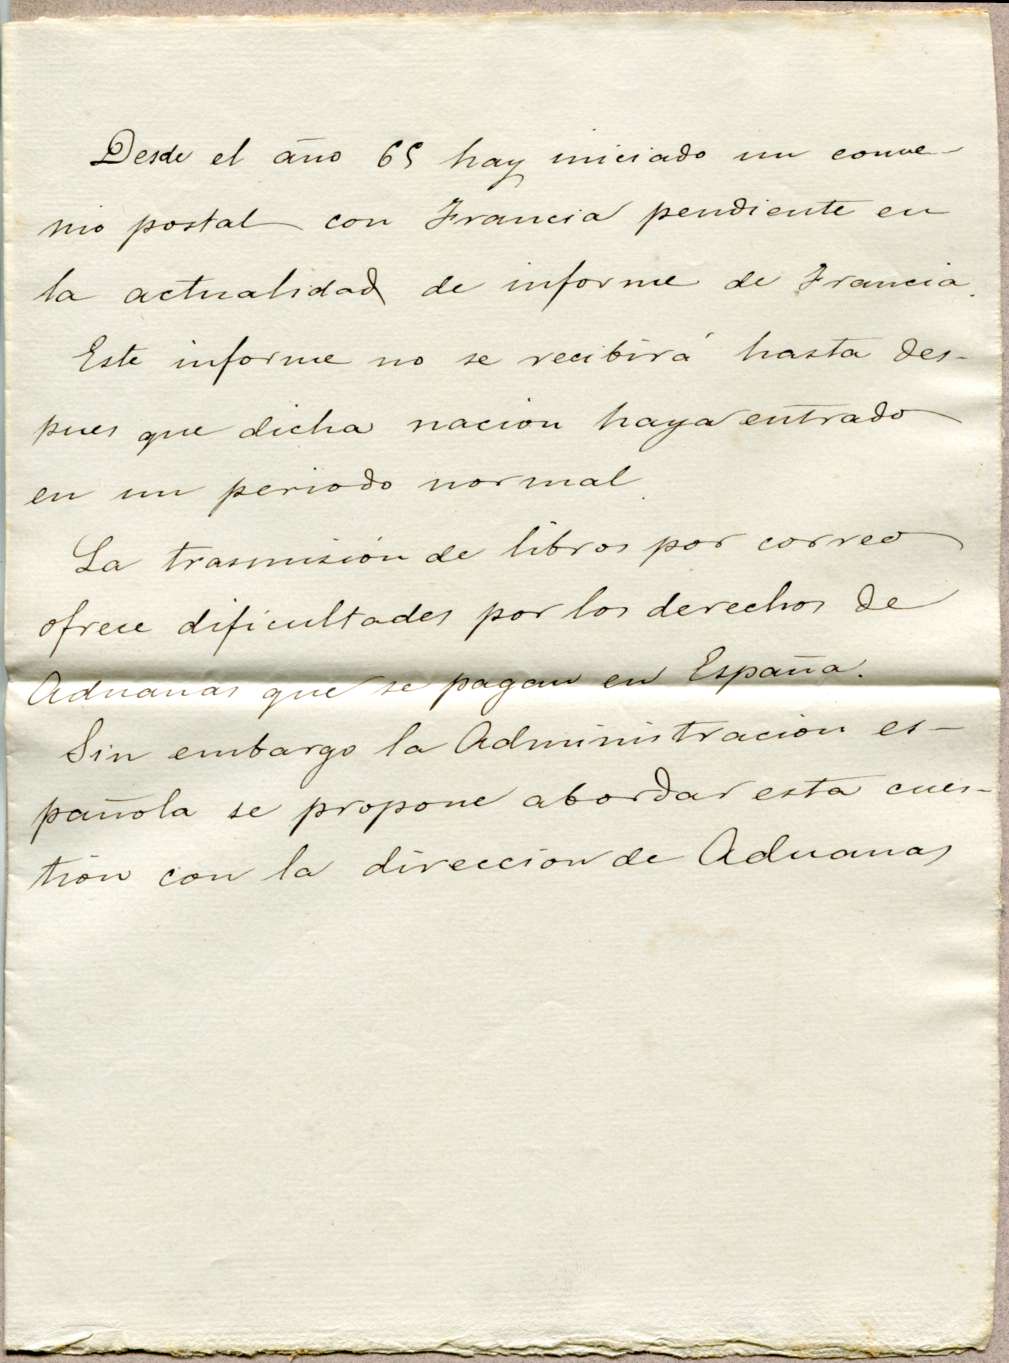 Desde el año 65 hay iniciado un conve-
nio postal con Francia pendiente en
la actualidad de informe de Francia.
Este informe no se recibirá hasta des-
pues que dicha nacion haya entrado
en un periodo normal.
La trasmisión de libros por correo
ofrece dificultades por los derechos de
Aduanas que se pagan en España.
Sin embargo la Administracion es-
pañola se propone abordar esta cues-
tión con la direccion de Aduanas